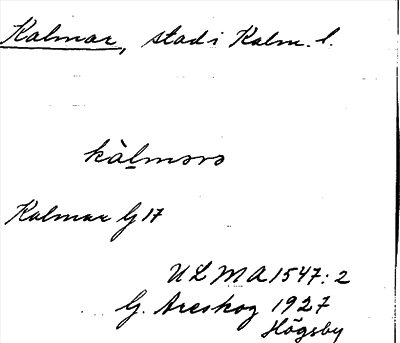 Kalmar, stad i Kalm. l.
kàlmərə
Kalmar G 17
ULMA 1547:2
G. Areskog 1927
Högsby